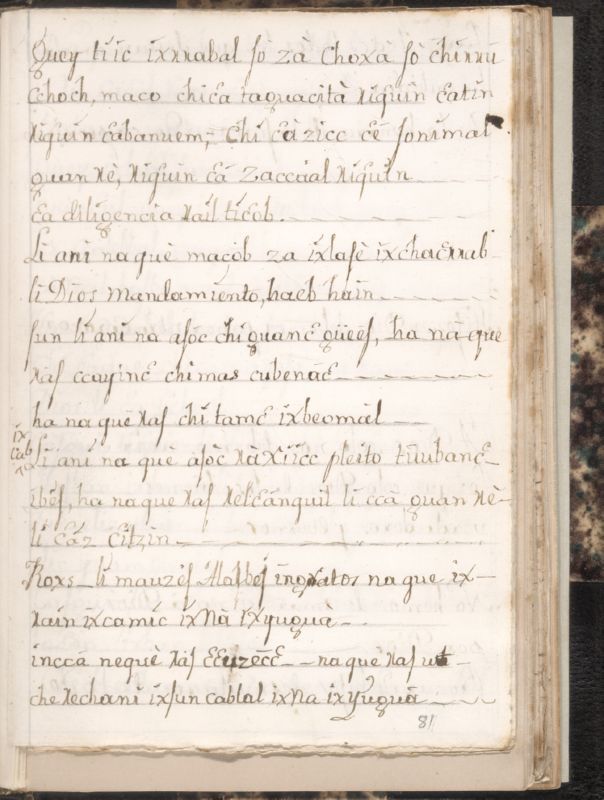 quey tiic ixnabal so za choxà sò chirru
cchoch, maco chiɛa taquacità xiquin ɛatin
xiquin ɛabanuem, chi ɛàzicc ɛe sonimal
quan xè, xiquin ɛa zaccaal xiquin
ɛa diligencia xail ticob.
Li ani na què macòb za ixlasè ixchaɛrrub
li Dios mandamiento, haeb hain
sun li ani na asoc chi quanɛ queés, ha na que
xas ccayinɛ chi mas cubenaɛ
ha na què xas chi tamɛ ixbeomal
ix
cab
ra
Li ani na què àsòc xaxiicc pleito tuubanɛ
ibes, ha na que xas xelɛanquil li ccà quan xè
li ɛáz ɛitzin
Roxs li mauzès Halbes ingratos na que ix
xain ixcamic ixNà ixyuquà
inccà nequè xas ɛɛuzɛɛ na que xas ut
che xechani ixsun cablal ixNa ixyuquà
81